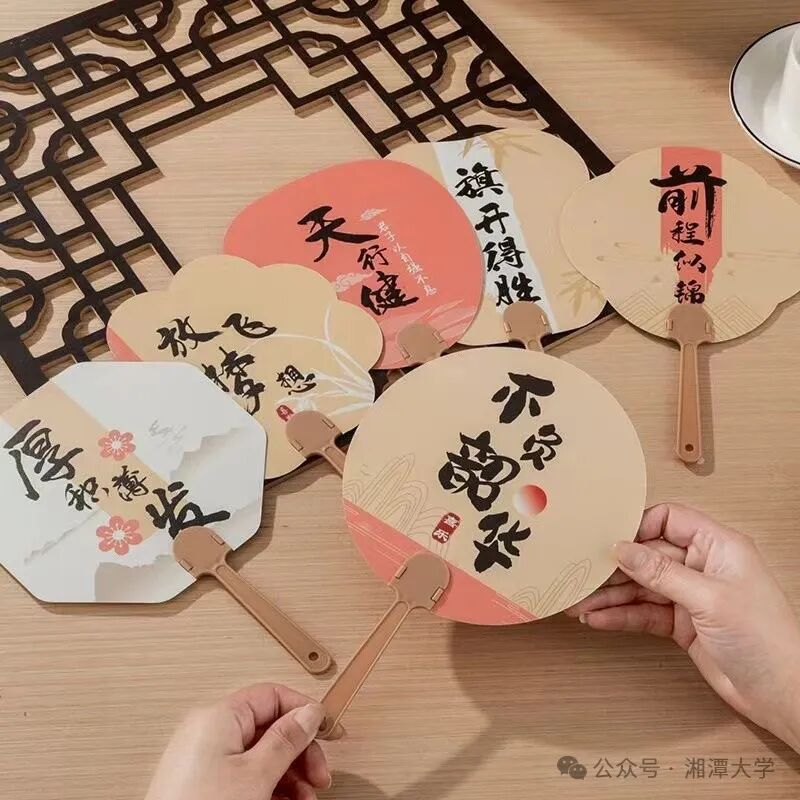 旗开得胜
前程似锦
天行健
君子以自强不息
放飞
梦想
厚积薄发
不负韶华
公众号 · 湘潭大学